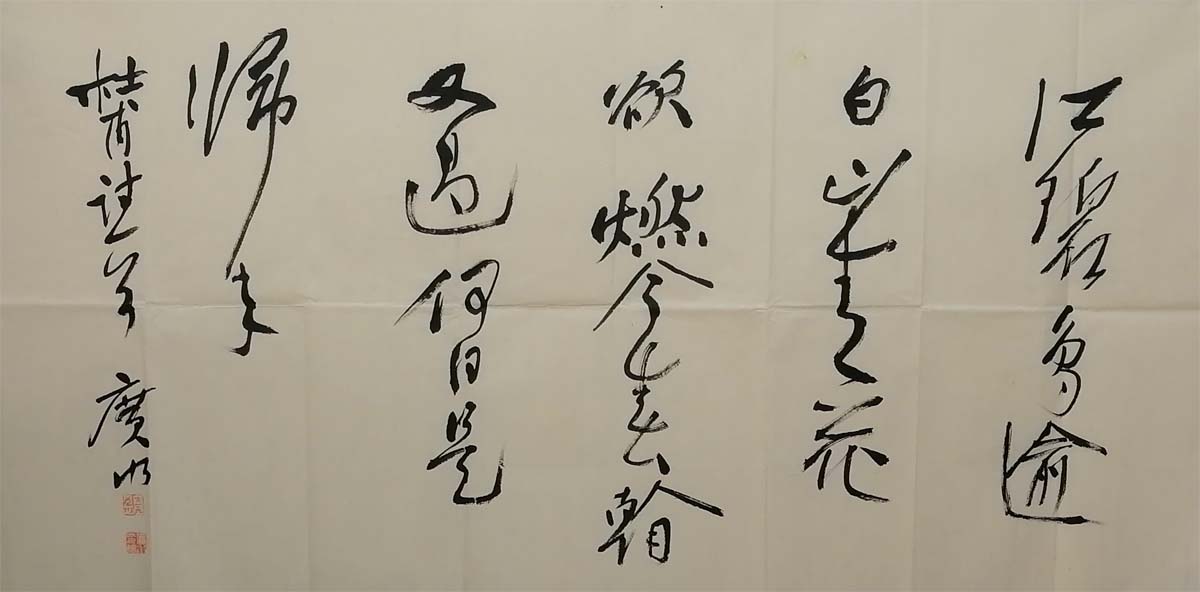 江碧鳥逾
白山青花
欲燃今春看
又過何日是
歸年
杜甫詩一首 廣明